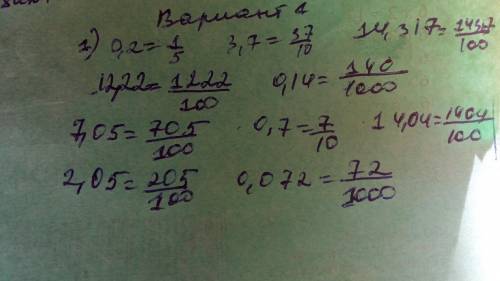 Вариант 1
1) 0,2 = 1/5 3,7 = 37/10 14,317 = 14317/100
12,22 = 1222/100 0,14 = 140/1000
7,05 = 705/100 0,7 = 7/10 14,04 = 1404/100
2,05 = 205/100 0,072 = 72/1000